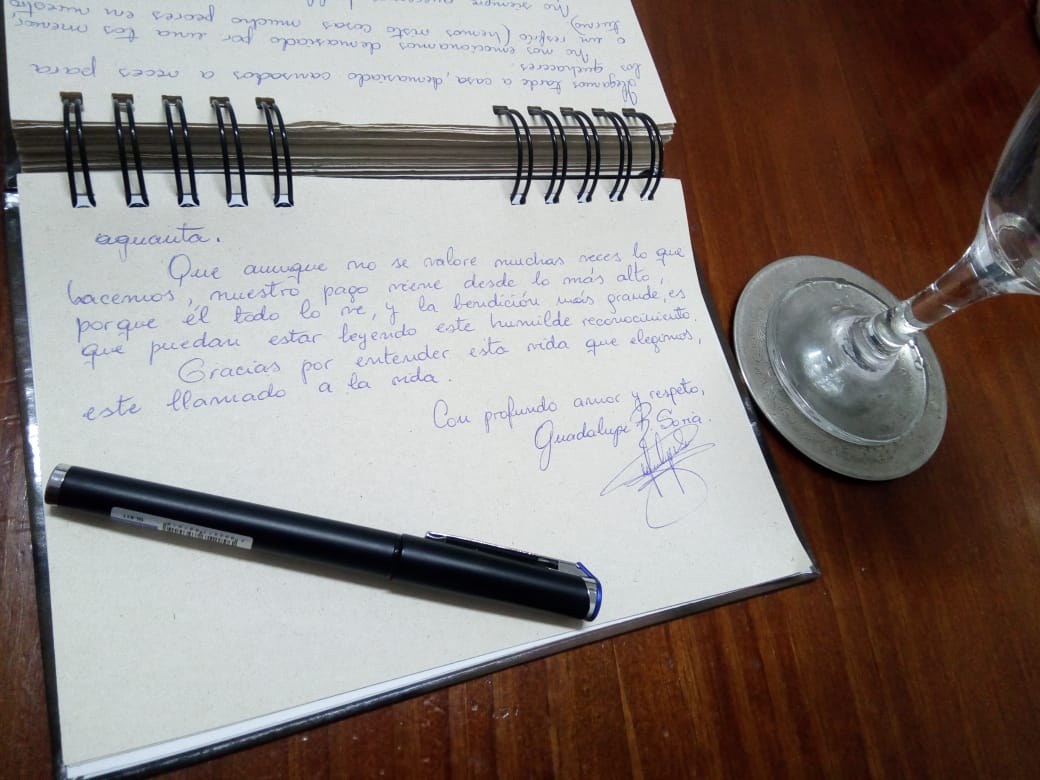 Llegamos tarde a casa, demasiado cansados a veces para
los quehaceres.
No nos emocionamos demasiado por una tos menor,
o un resfrío (hemos visto cosas mucho peores en nuestro
turno)
No siempre queremos
aguanta.
Que aunque no se valore muchas veces lo que
hacemos, nuestro pago viene desde lo más alto,
porque él todo lo ve, y la bendición más grande, es
que puedan estar leyendo este humilde reconocimiento.
Gracias por entender esta vida que elegimos,
este llamado a la vida.
Con profundo amor y respeto,
Guadalupe B. Soria.